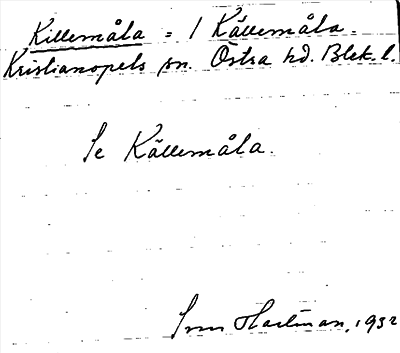 Killemåla = / Källemåla.
Kristianopels sn. Östra hd. Blek. l.
Se Källemåla.
Hartman, 1932